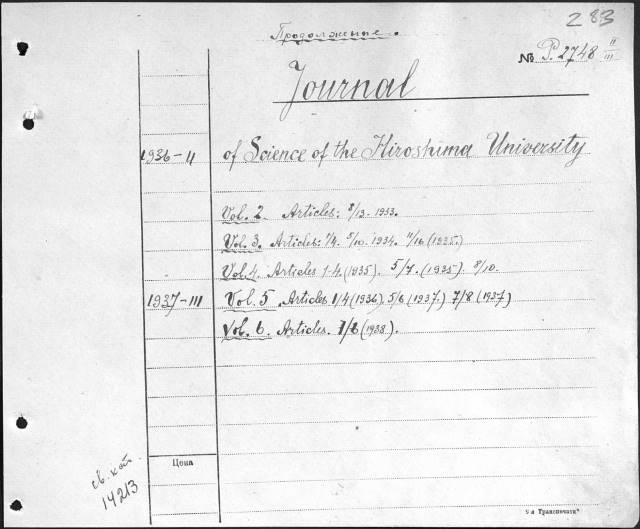 283
Продолжение.
№ P. 2748 II/III
Journal
1936-II of Science of the Hiroshima University
Vol. 2. Articles: 8/13. 1933.
Vol. 3. Articles: 1/4. 5/10. 1934. 11/16 (1935.)
Vol. 4. Articles 1-4. (1935). 5/7. (1935). 8/10.
1937-III Vol. 5. Articles 1/4 (1936). 5/6 (1937.) 7/8 (1937)
Vol. 6. Articles. (1938).
Цена
св. кат.
14213
я Транспечати"